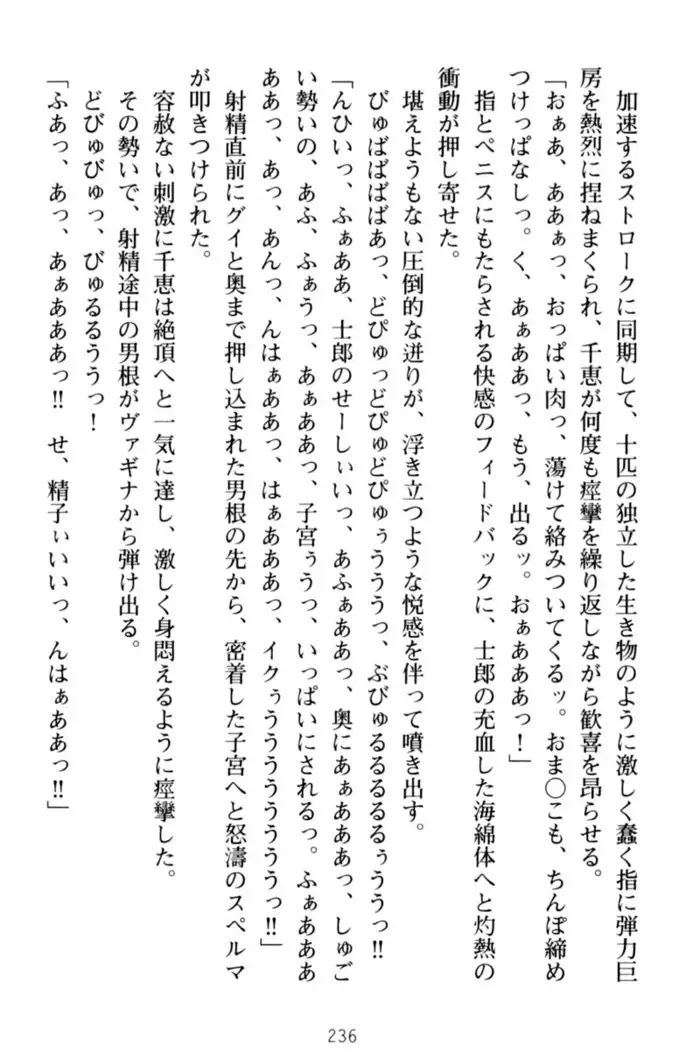 加速するストロークに同期して、十匹の独立した生き物のように激しく蠢く指に弾力巨
房を熱烈に捏ねまくられ、千恵が何度も痙攣を繰り返しながら歓喜を昂らせる。
「おぁあ、ああぁっ、おっぱい肉っ、蕩けて絡みついてくるッ。おま〇こも、ちんぽ締め
つけっぱなしっ。く、あぁああっ、もう、出るッ。おぁあああっ！」
指とペニスにもたらされる快感のフィードバックに、士郎の充血した海綿体へと灼熱の
衝動が押し寄せた。
堪えようもない圧倒的な迸りが、浮き立つような悦感を伴って噴き出す。
びゅばばばばあっ、どぴゅっどぴゅどぴゅぅうううっ、ぶびゅるるるるぅううっ!!
「んひいっ、ふぁああ、士郎のせーしぃいっ、あふぁああっ、奥にあぁあああっ、しゅご
い勢いの、あふ、ふぁうっ、あぁああっ、子宮ぅうっ、いっぱいにされるっ。ふぁあああ
ああっ、あっ、あんっ、んはぁああっ、はぁあああっ、イクぅうううううううっ!!」
射精直前にグイと奥まで押し込まれた男根の先から、密着した子宮へと怒濤のスペルマ
が叩きつけられた。
容赦ない刺激に千恵は絶頂へと一気に達し、激しく身悶えるように痙攣した。
その勢いで、射精途中の男根がヴァギナから弾け出る。
どびゅびゅっ、びゅるるううっ！
「ふあっ、あっ、あぁあああっ!!　せ、精子ぃいいっ、んはぁああっ!!」
236